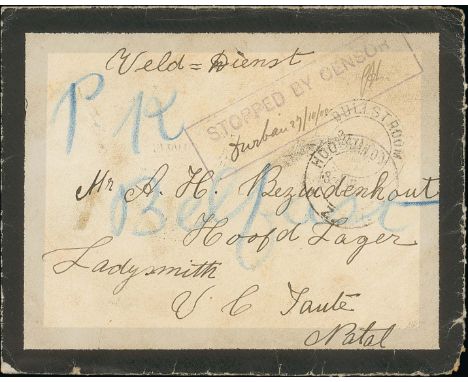 Veld = Dienst
P K
STOPPED BY CENSOR
Durban 27/10/00
DULLSTROOM
Mr A. H. Bezuidenhout
Belfast
Hoofd Lager
Ladysmith
V C Taute
Natal